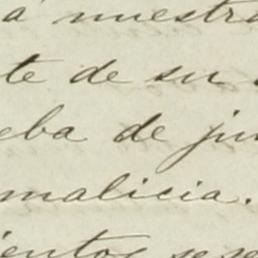 á nuestra
te de su
eba de ju
malicia.
ientos